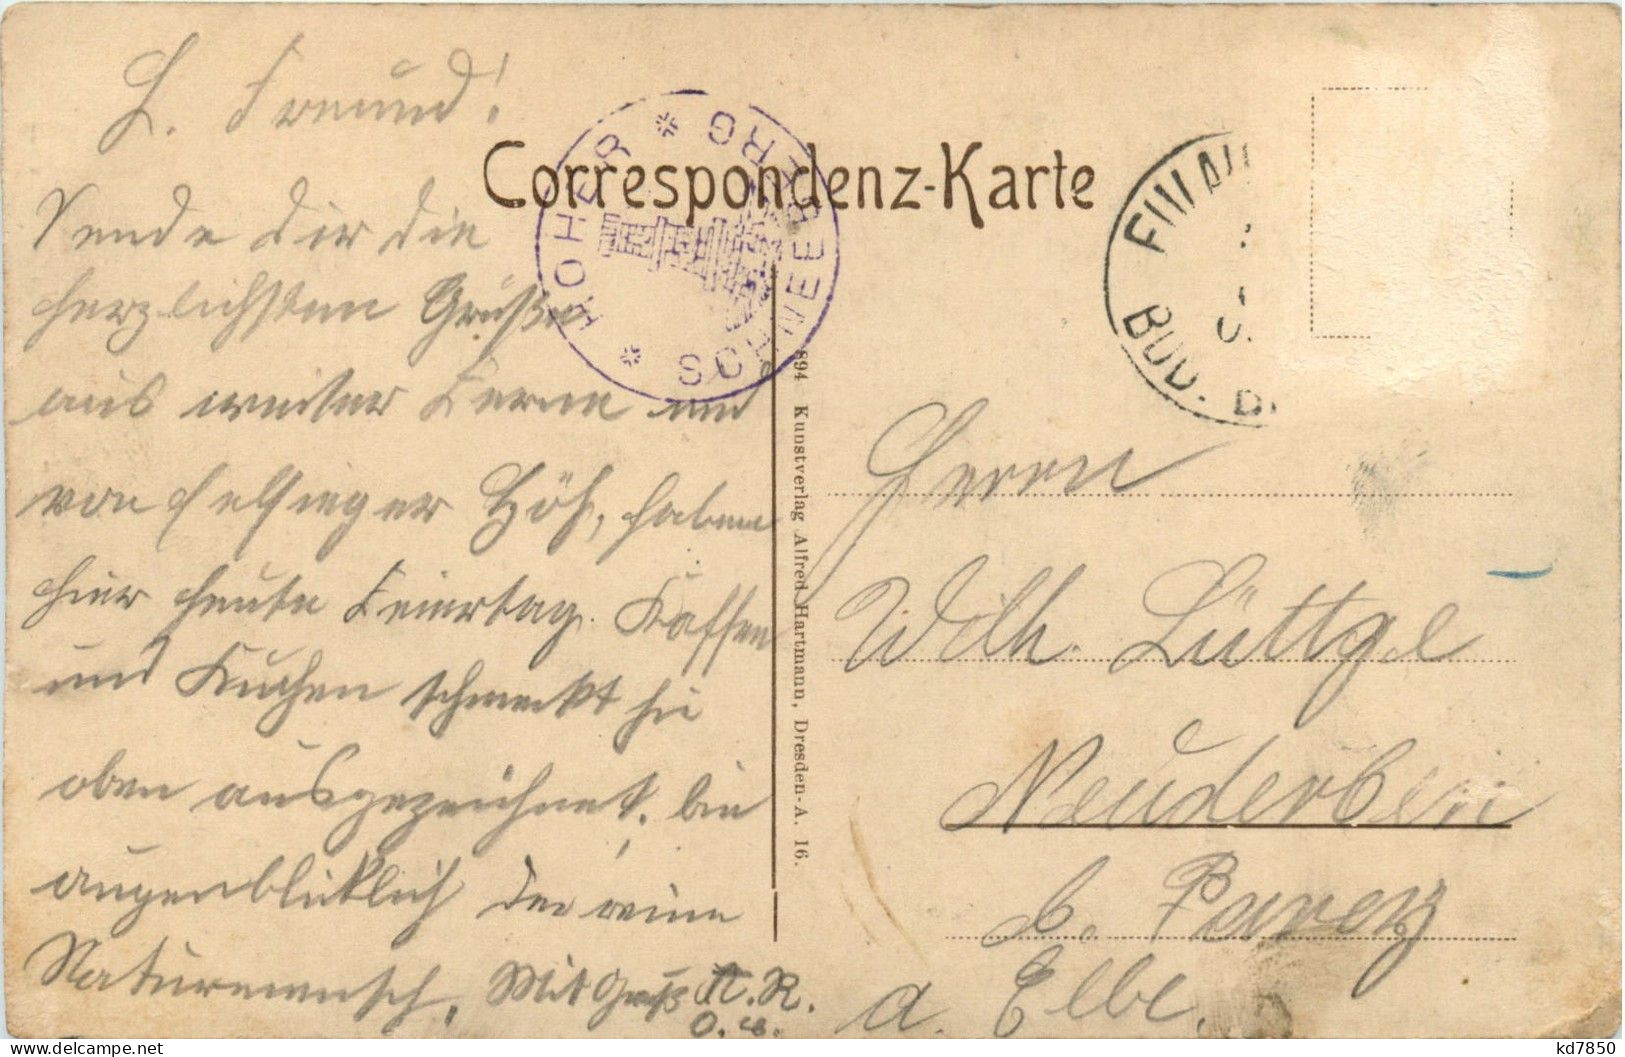 L. Freund!
Sende Dir die
herzlichsten Grüße
aus weiter Ferne und
von felsiger Höh, haben
hier heute Feiertag. Kaffee
und Kuchen schmeckt hie
oben ausgezeichnet. bin
augenblicklich der reine
Naturmensch. Mit Gruß A. R.
Correspondenz-Karte
HOHER
SCHNEEBERG
BOD. B
894 Kunstverlag Alfred Hartmann, Dresden-A. 16.
Herrn
Wilh. Lüttge
Neuderben
b. Parey
a. Elbe.
kd7850